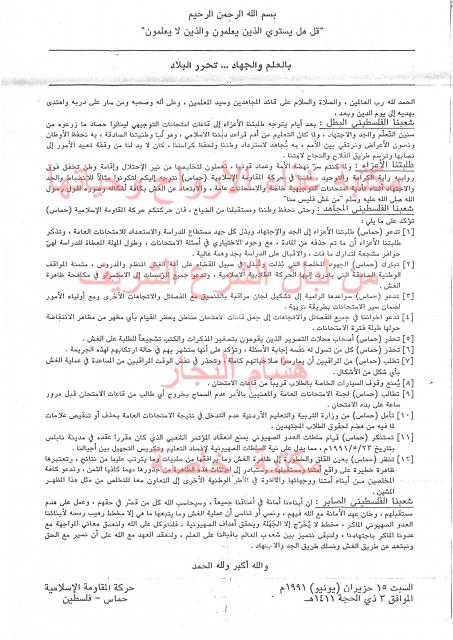 بسم الله الرحمن الرحيم
"قل هل يستوي الذين يعلمون والذين لا يعلمون"
بالعلم والجهاد ... تتحرر البلاد
الحمد لله رب العالمين، والصلاة والسلام على قائد المجاهدين وسيد المعلمين، وعلى آله وصحبه ومن سار على دربه واهتدى
بهديه إلى يوم الدين وبعد،
شعبنا الفلسطيني البطل: بعد أيام يتوجه طلبتنا الأعزاء إلى قاعات امتحانات التوجيهي لينالوا حصاد ما زرعوه من
سنين التعلم والجد والاجتهاد، ولما كان التعليم من أهم قواعد ديننا الاسلامي، وهو لب وطنيتنا الصادقة، به نحفظ الأوطان
ونصون الأعراض ونرتقي بين الأمم، به نجاهد لاسترداد وطننا ولحفظ كرامتنا، كان لا بد لنا من وقفة تعيد الأمور إلى
نصابها وترسم طريق الفلاح والنجاح لامتنا.
طلبتنا الأعزاء: ولما كنتم سر نهضة الأمة وعماد قوتها، تعملون لتخليصها من نير الإحتلال وإقامة وطن تخفق فوق
روابيه راية الكرامة والتوحيد، فإننا في حركة المقاومة الإسلامية (حماس) نتوجه إليكم لتكونوا مثالاً للانضباط والجد
والاجتهاد أثناء تأدية امتحانات التوجيهية خاصة والامتحانات عامة، والابتعاد عن الغش بكافة أشكاله وصوره لقول رسول
الله صلى الله عليه وسلم "من غش فليس منا"
شعبنا الفلسطيني المجاهد: وحتى نحفظ وطننا ومستقبلنا من الضياع، فان حركتكم حركة المقاومة الإسلامية (حماس)
تؤكد على ما يلي:
[١] تدعو (حماس) طلبتنا الأعزاء إلى الجد والإجتهاد وبذل كل جهد مستطاع للدراسة والاستعداد للامتحانات العامة، ونذكر
طلبتنا الأعزاء أن ما تم حذفه من المادة، مع وجود الاختياري في أسئلة الامتحانات، وطول المهلة المعطاة للدراسة لهي
حوافز مشجعة لتدارك ما فات، والاقبال على الدراسة بجد وهمة عالية.
[٢] تبارك (حماس) الجهود المخلصة التي بُذلت وتُبذل في سبيل القضاء على آفة الغش النظم والدروس، مثمنة المواقف
الوطنية الصادقة التي بادرت إليها الحركة الطلابية الإسلامية، وتدعو جميع المؤسسات إلى الاستمرار في مكافحة ظاهرة
الغش.
[٣] تدعو (حماس) سواعدها الرامية إلى تشكيل لجان مراقبة بالتنسيق مع الفصائل والاتجاهات الأخرى ومع أولياء الأمور
لضمان سير الامتحانات بطريقة نزيهة.
[٤] تدعو اخواننا في جميع الفصائل والاتجاهات إلى جعل قاعات الامتحان مناطق يحظر القيام بأي مظهر من مظاهر الانتفاضة
حولها طيلة فترة الامتحانات.
[٥] تحذر (حماس) أصحاب محلات التصوير الذين يقومون بتصغير المذكرات والكتب تشجيعاً للطلبة على الغش.
[٦] تحذر (حماس) كل من تسول له نفسه إجابة الأسئلة، ونؤكد على أنها ستشهر بهم في حالة ارتكابهم لهذه الجريمة.
[٧] تطلب (حماس) من المراقبين أن يمارسوا صلاحياتهم كاملة، وتحذر في نفس الوقت المراقبين من المساعدة في عملية الغش
بأي شكل من الأشكال.
[٨] يُمنع وقوف السيارات الخاصة بالطلاب قريباً من قاعات الامتحان.
[٩] تطالب (حماس) لجنة الامتحانات العامة والمعنيين بالأمر عدم السماح بخروج أي طالب من قاعات الامتحان قبل مرور
ساعة على بدء الامتحان.
[١٠] تأمل (حماس) من وزارة التربية والتعليم الأردنية عدم التدخل في نتيجة الامتحانات العامة بحذف أو تنقيص علامات
لما فيه من هضم لحقوق الطلاب المجتهدين.
[١١] تستنكر (حماس) قيام سلطات العدو الصهيوني بمنع انعقاد المؤتمر الشعبي الذي كان مقرراً عقده في مدينة نابلس
بتاريخ ١٩٩١/٥/٢٣م، مما يدلل على نية السلطات الصهيونية لإفساد التعليم وتكريس التجهيل بين أجيالنا.
[١٢] تنظر (حماس) بعين القلق والخطورة إلى ظاهرة الغش وما يرافقها من سلبيات وما يترتب عليها من نتائج، وتعتبرها
ظاهرة خطيرة على واقع أمتنا ومستقبلها، وستبادر إلى اجتثاث هذه الظاهرة من جذورها مهما كلفها الثمن، وتدعو كافة
المخلصين من أبناء أمتنا ووجهائها والاخوة في الأطر الوطنية الأخرى إلى التعاون معا للتخلص من مثل هذا المظهر
المشين.
شعبنا الفلسطيني الصابر: ان أبناءنا أمانة في أعناقنا جميعاً، وسيحاسب الله كل من قصر في حقهم، وعمل على هدم
مستقبلهم، وخان عهد الأمانة مع الله فيهم، ونسي أو تناسى أن عملية الغش وما يتبعها ما هي إلا مخطط رهيب رسمه لأبنائنا
العدو الصهيوني الماكر، مخطط لا يُخرّج إلا الجهلة ويحقق أهداف الصهيونية، فلنتوكل على الله ولنعمق معاني المواجهة مع
عدونا الماكر باجتهادنا، ولنبقى نتميز بين شعوب العالم باقبالنا على العلم، ولنعقد العهد مع الله على أن نسير مع الحق
ونبتعد عن طريق الغش ونسلك طريق الجد والاجتهاد.
والله أكبر ولله الحمد
السبت ١٥ حزيران (يونيو) ١٩٩١م
الموافق ٣ ذي الحجة ١٤١١هـ
حركة المقاومة الإسلامية
حماس - فلسطين
من خلال الفرع الشريف
هشام النجار